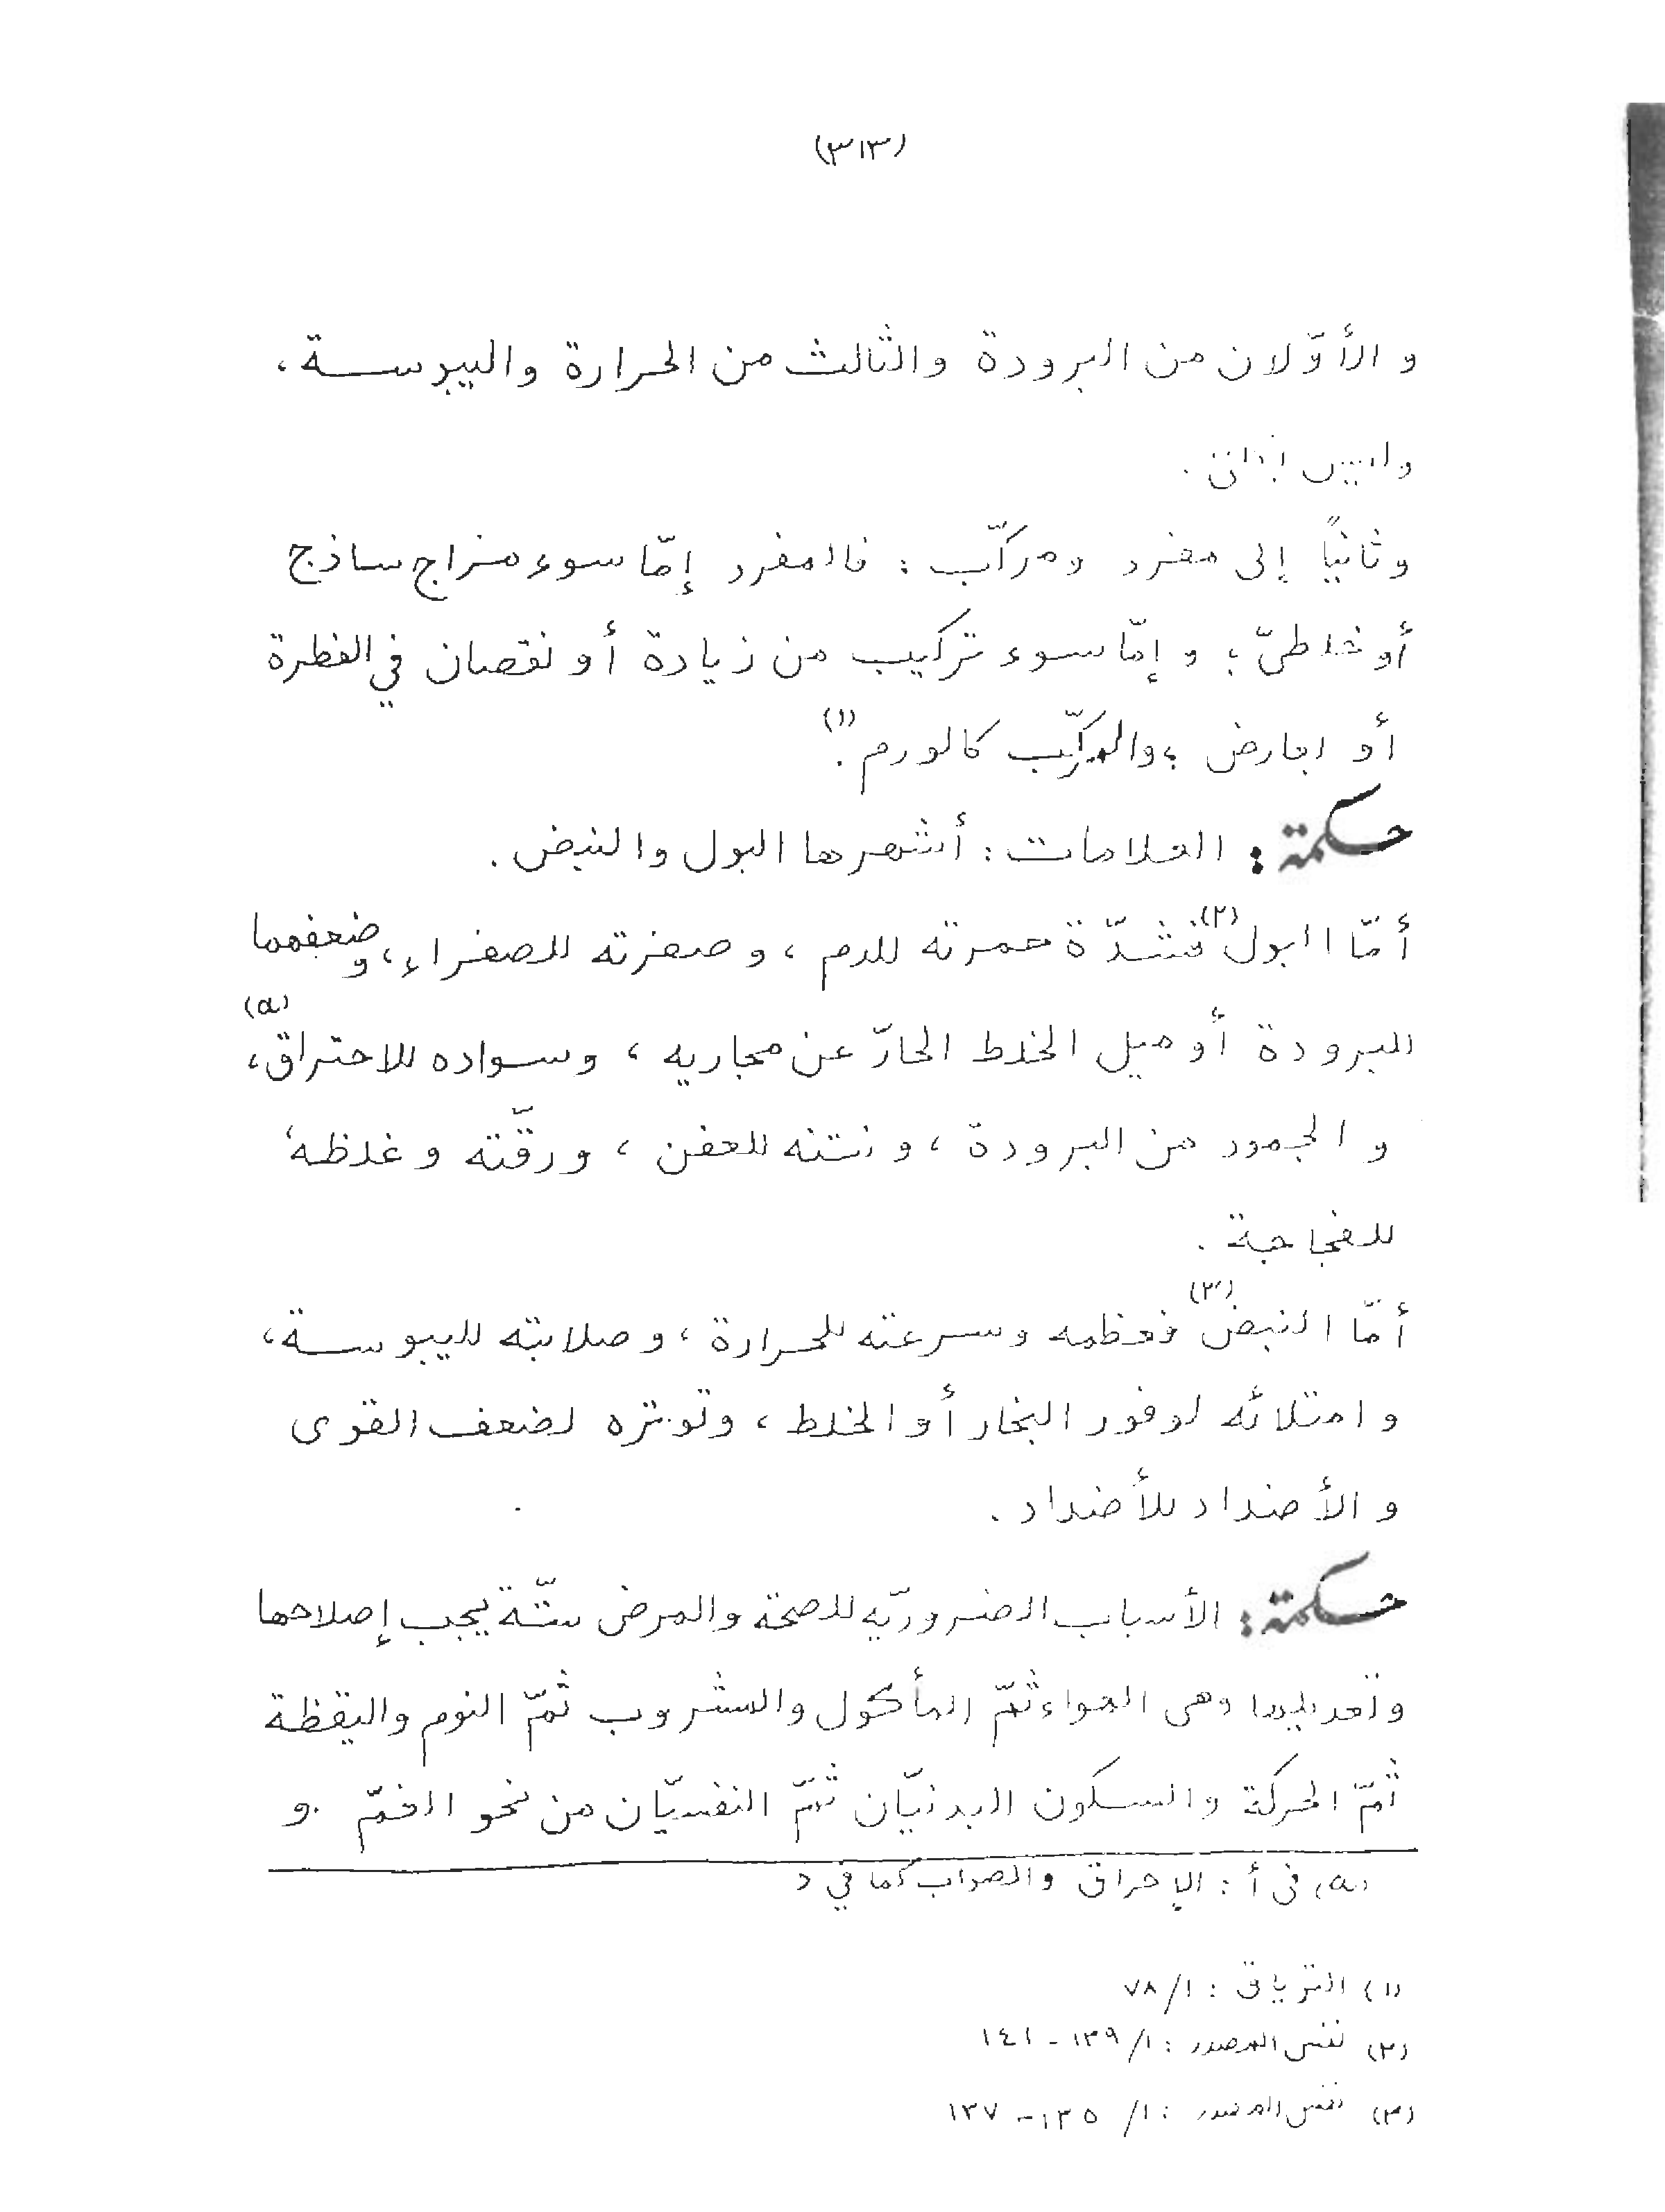 (٣١٣)
والأوّلان من البرودة والثالث من الحرارة واليبوسة،
وليس
وثانيًا إلى مفرد ومركّب : فالمفرد إمّا سوء مزاج ساذج
أو خلطيّ ؛ وإمّا سوء تركيب من زيادة أو نقصان في الفطرة
أو لعارض ؛ والمركّب كالورم .(١)
حكمة : العلامات : أشهرها البول والنبض .
أمّا البول(٢) فشدّة حمرته للدم ، وصفرته للصفراء ، وضعفهما
للبرودة أو ميل الخلط الحارّ عن مجاريه ، وسواده للاحتراق(a) ،
والجمود من البرودة ، ونتنه للعفن ، ورقّته وغلظه
للفجاجة .
أمّا النبض(٣) فعظمه وسرعته للحرارة ، وصلابته لليبوسة ،
وامتلائه لوفور البخار أو الخلط ، وتوتره لضعف القوى
والأضداد للأضداد .
حكمة : الأسباب الضروريّه للصحة والمرض ستّة يجب إصلاحها
وتعديلها وهى الهواء ثمّ المأكول والمشروب ثمّ النوم واليقظة
ثمّ الحركة والسكون البدنيّان ثمّ النفسيّان من نحو الغمّ و
(a) فى أ : الإحراق والصواب كما في د
(١) الترياق : ١/ ٧٨
(٢) نفس المصدر : ١/ ١٣٩ - ١٤١
(٣) نفس المصدر : ١/ ١٣٥ - ١٣٧